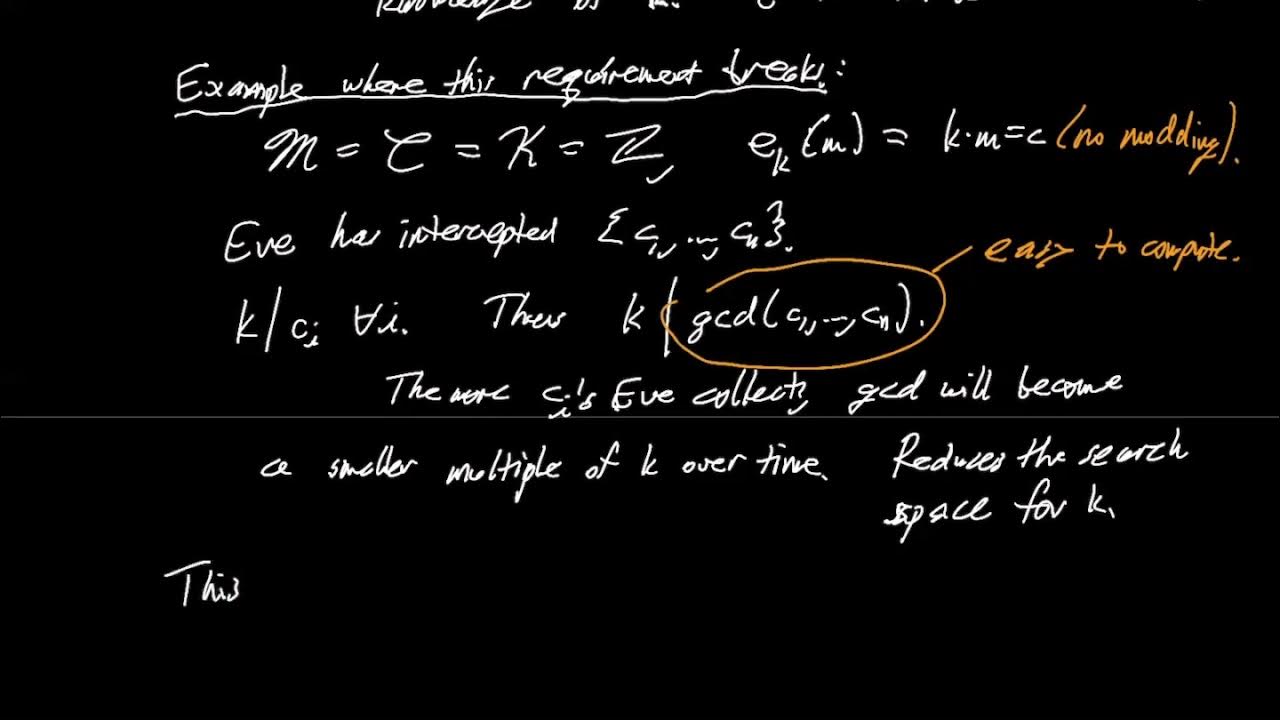 Example where this requirement breaks:
ℳ = 𝒞 = 𝒦 = ℤ, e_k(m) = k·m = c (no modding).
Eve has intercepted {c_1, ..., c_n}.
easy to compute.
k | c_i ∀i. Thus k | gcd(c_1, ..., c_n).
The more c_i's Eve collects, gcd will become
a smaller multiple of k over time. Reduces the search
space for k.
This